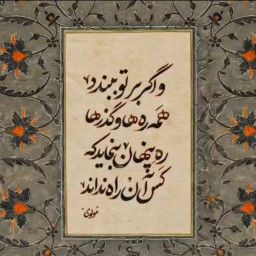 وگر بر تو ببندد
همه ره‌ها و گذرها
ره پنهان بنماید که
کس آن راه نداند
مولوی